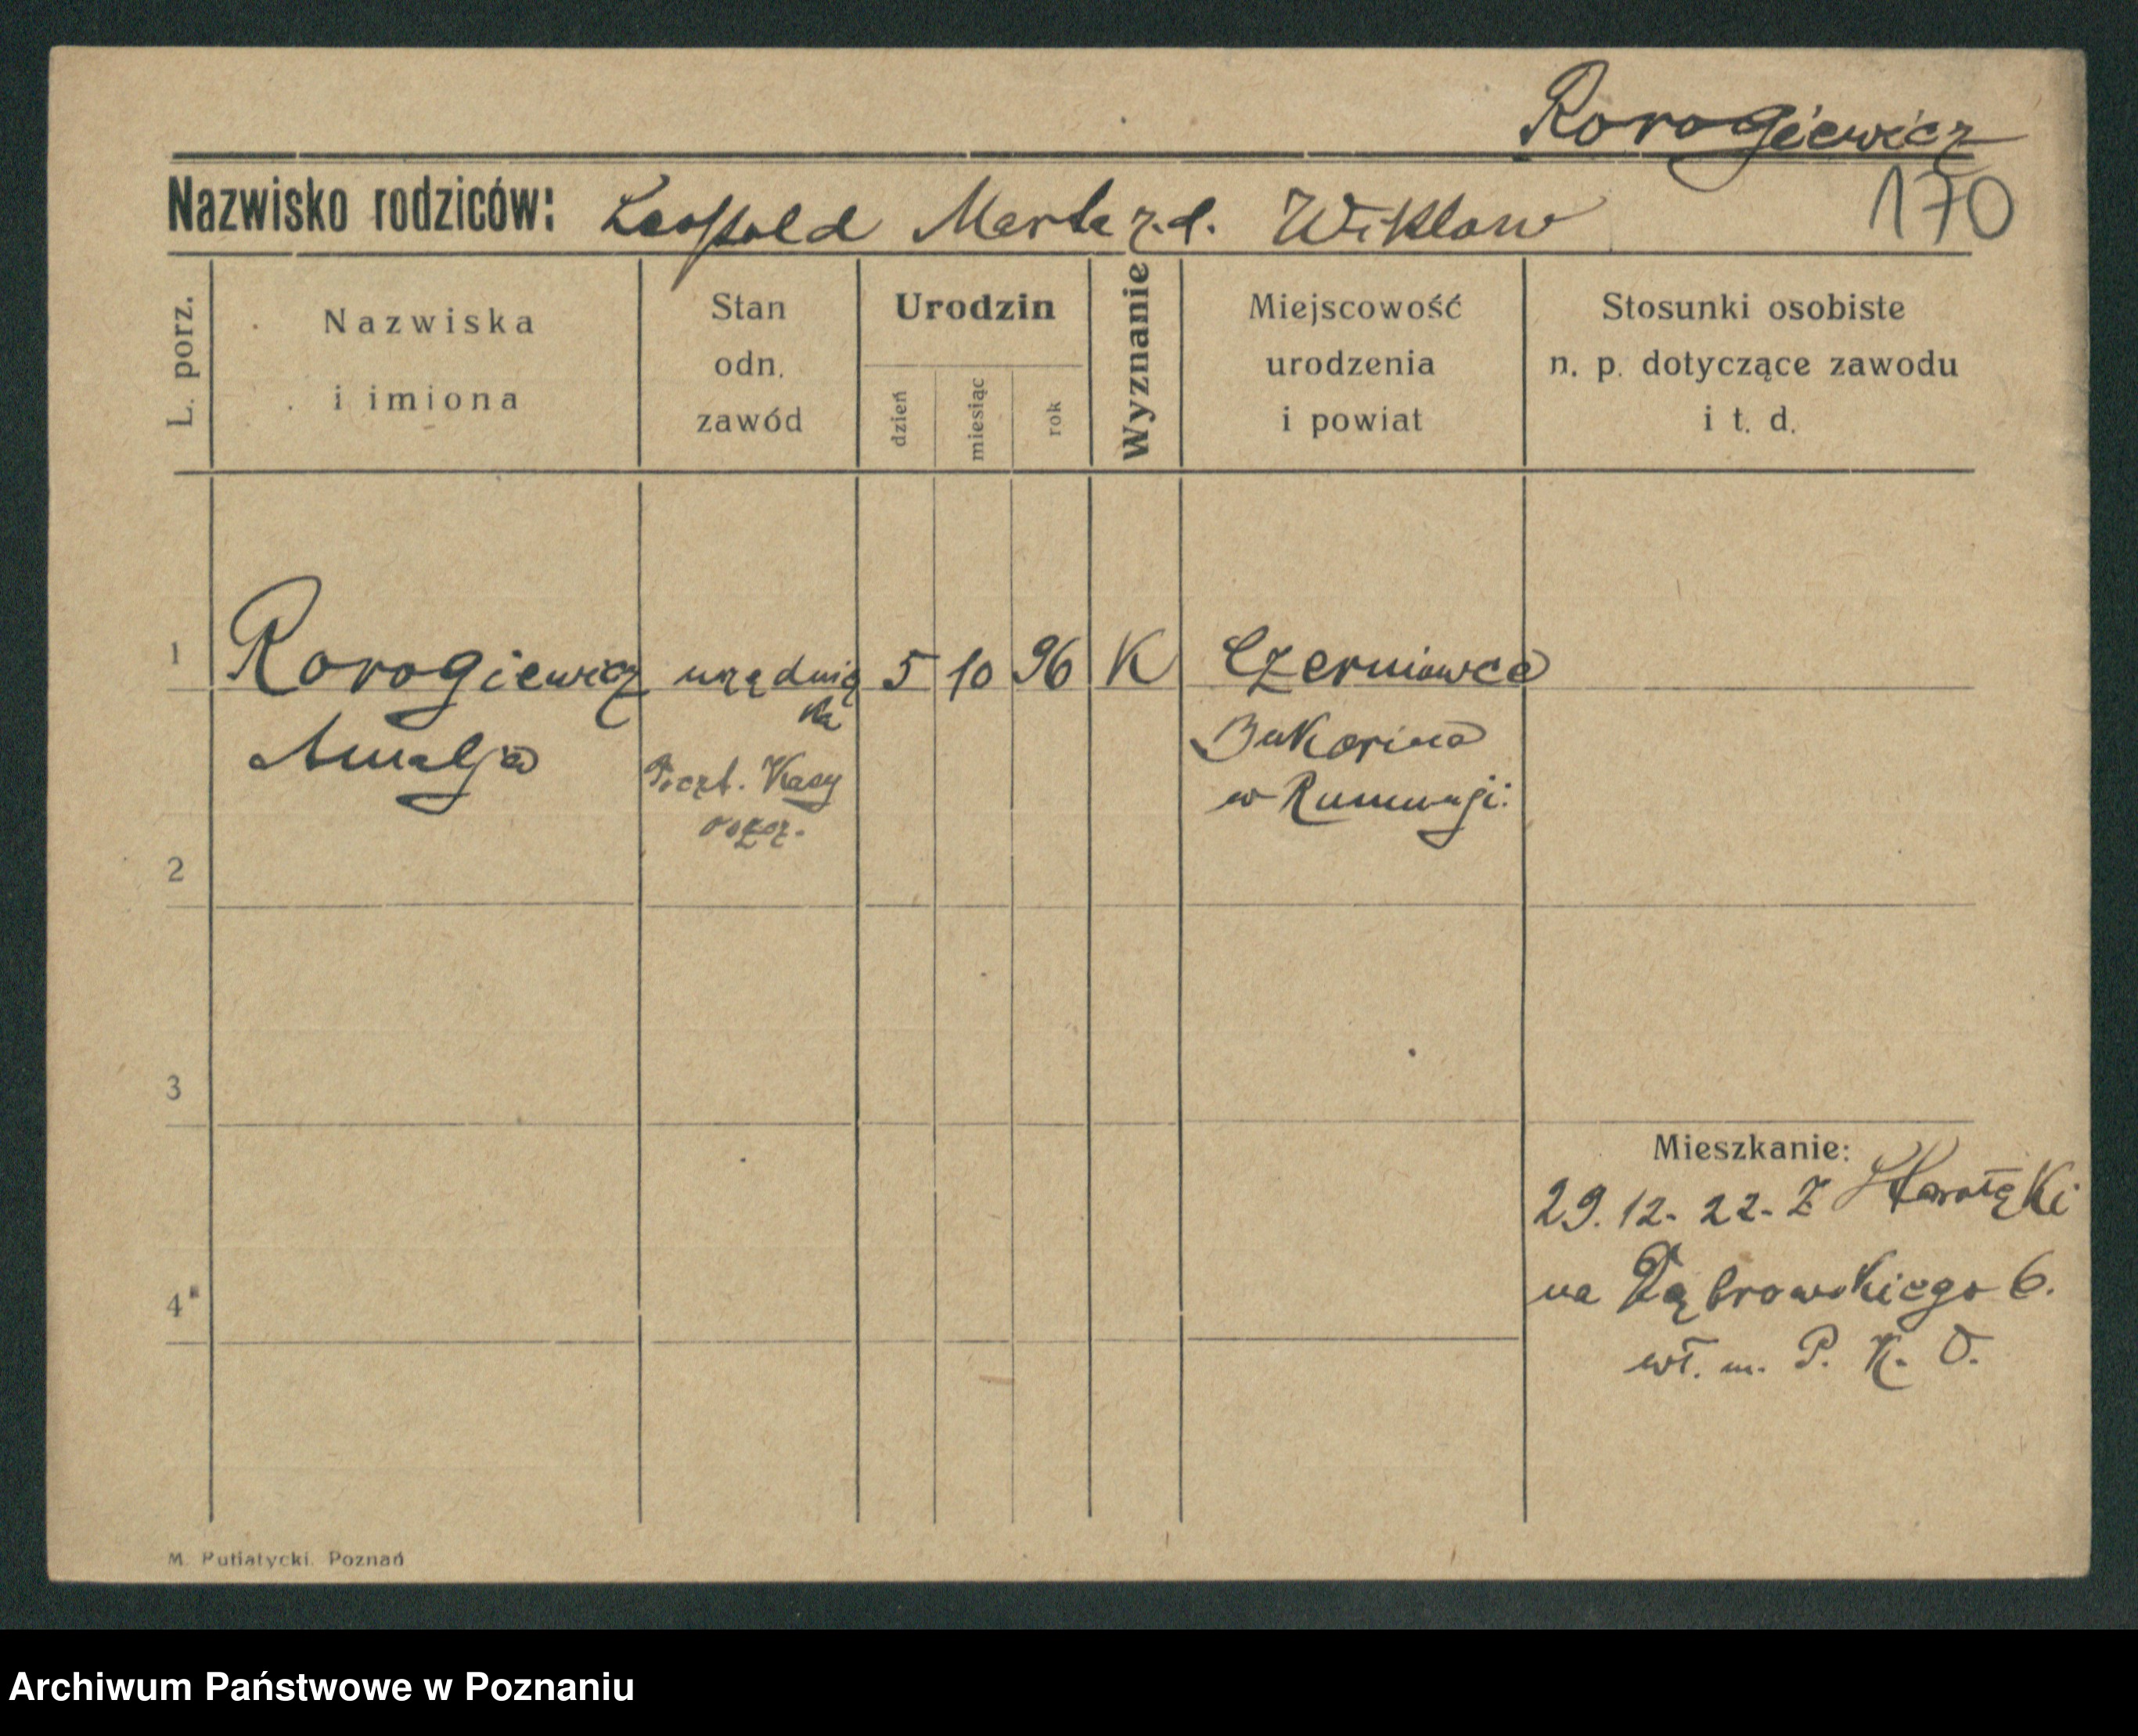 Rorogiewicz
170
Nazwisko rodziców: Leopold Marta z.d. Wiklow
L. porz.
Nazwiska
i imiona
Stan
odn.
zawód
Urodzin
dzień
miesiąc
rok
Wyznanie
Miejscowość
urodzenia
i powiat
Stosunki osobiste
n. p. dotyczące zawodu
i t. d.
1 Rorogiewicz urzędnicz 5 10 96 K Czerniowce
ka
Amalja
Bukowina
Poczt. Kasy
w Rumunji
oszcz.
2
3
Mieszkanie:
29. 12. 22. Z
4
na Dąbrowskiego 6.
wł. m. P. K. O.
M. Putiatycki. Poznań
Archiwum Państwowe w Poznaniu